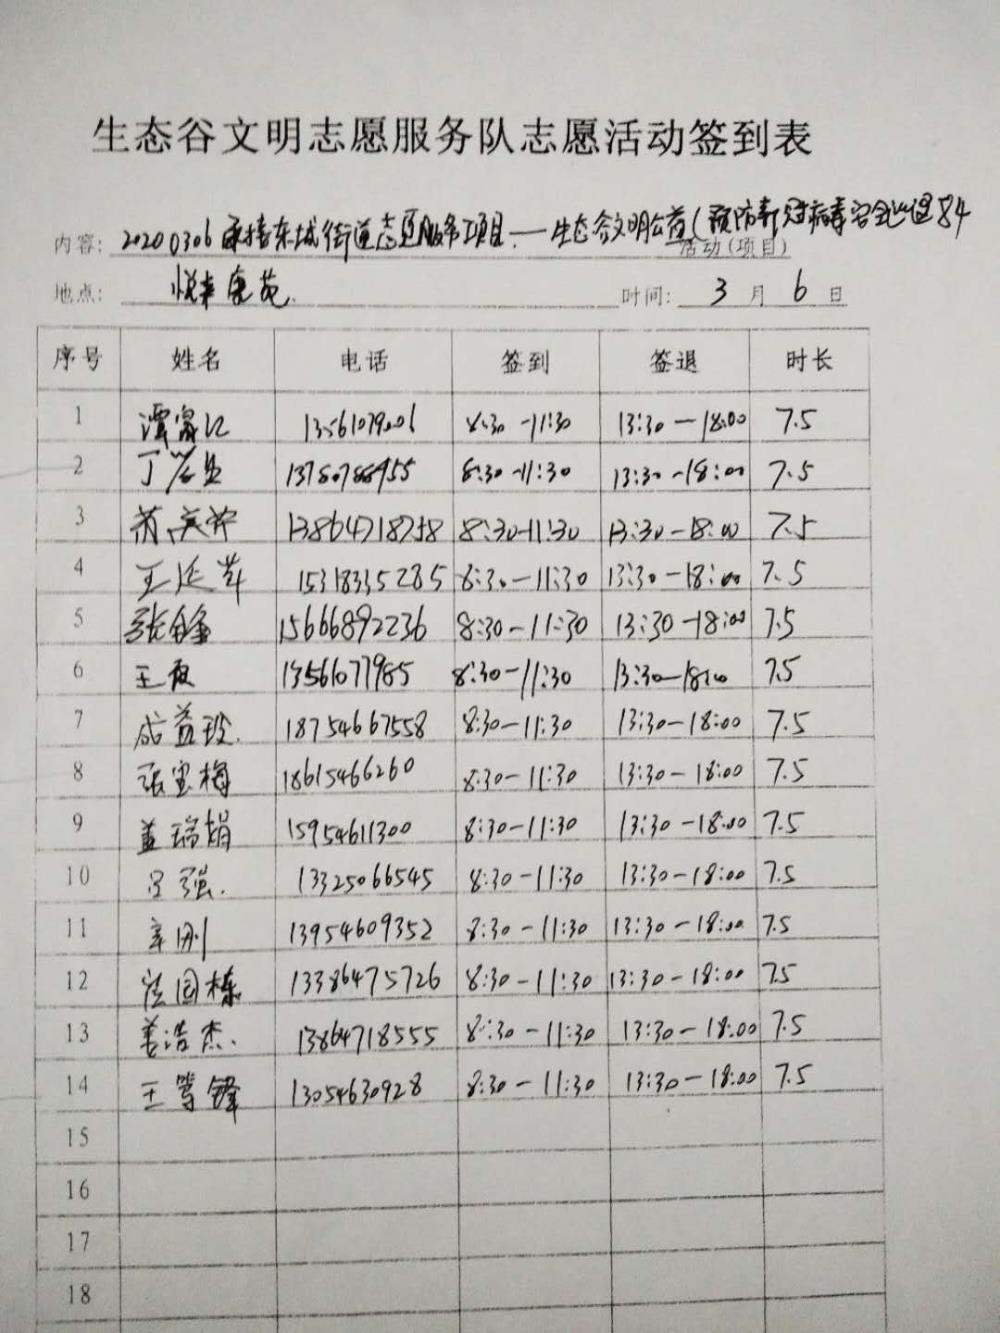 生态谷文明志愿服务队志愿活动签到表
内容: 20200306承接东城街道志愿服务项目——生态谷文明公益(预防新冠病毒安全 84
活动(项目)
地点: 悦来康苑 时间: 3 月 6 日
序号 姓名 电话 签到 签退 时长
1 谭富江 13561079006 8:30-11:30 13:30-18:00 7.5
2 丁 8:30-11:30 13:30-18:00 7.5
3 13864718758 8:30-11:30 13:30-18:00 7.5
4 王延苹 15318335285 8:30-11:30 13:30-18:00 7.5
5 张 15666892236 8:30-11:30 13:30-18:00 7.5
6 王 13561077985 8:30-11:30 13:30-18:00 7.5
7 成益政 18754667558 8:30-11:30 13:30-18:00 7.5
8 张宝梅 18615466260 8:30-11:30 13:30-18:00 7.5
9 盖瑞娟 15954611300 8:30-11:30 13:30-18:00 7.5
10 吕强 13325066545 8:30-11:30 13:30-18:00 7.5
11 辛刚 13954609352 8:30-11:30 13:30-18:00 7.5
12 国栋 13386475726 8:30-11:30 13:30-18:00 7.5
13 姜浩杰 13864718555 8:30-11:30 13:30-18:00 7.5
14 王 锋 13054630928 8:30-11:30 13:30-18:00 7.5
15
16
17
18